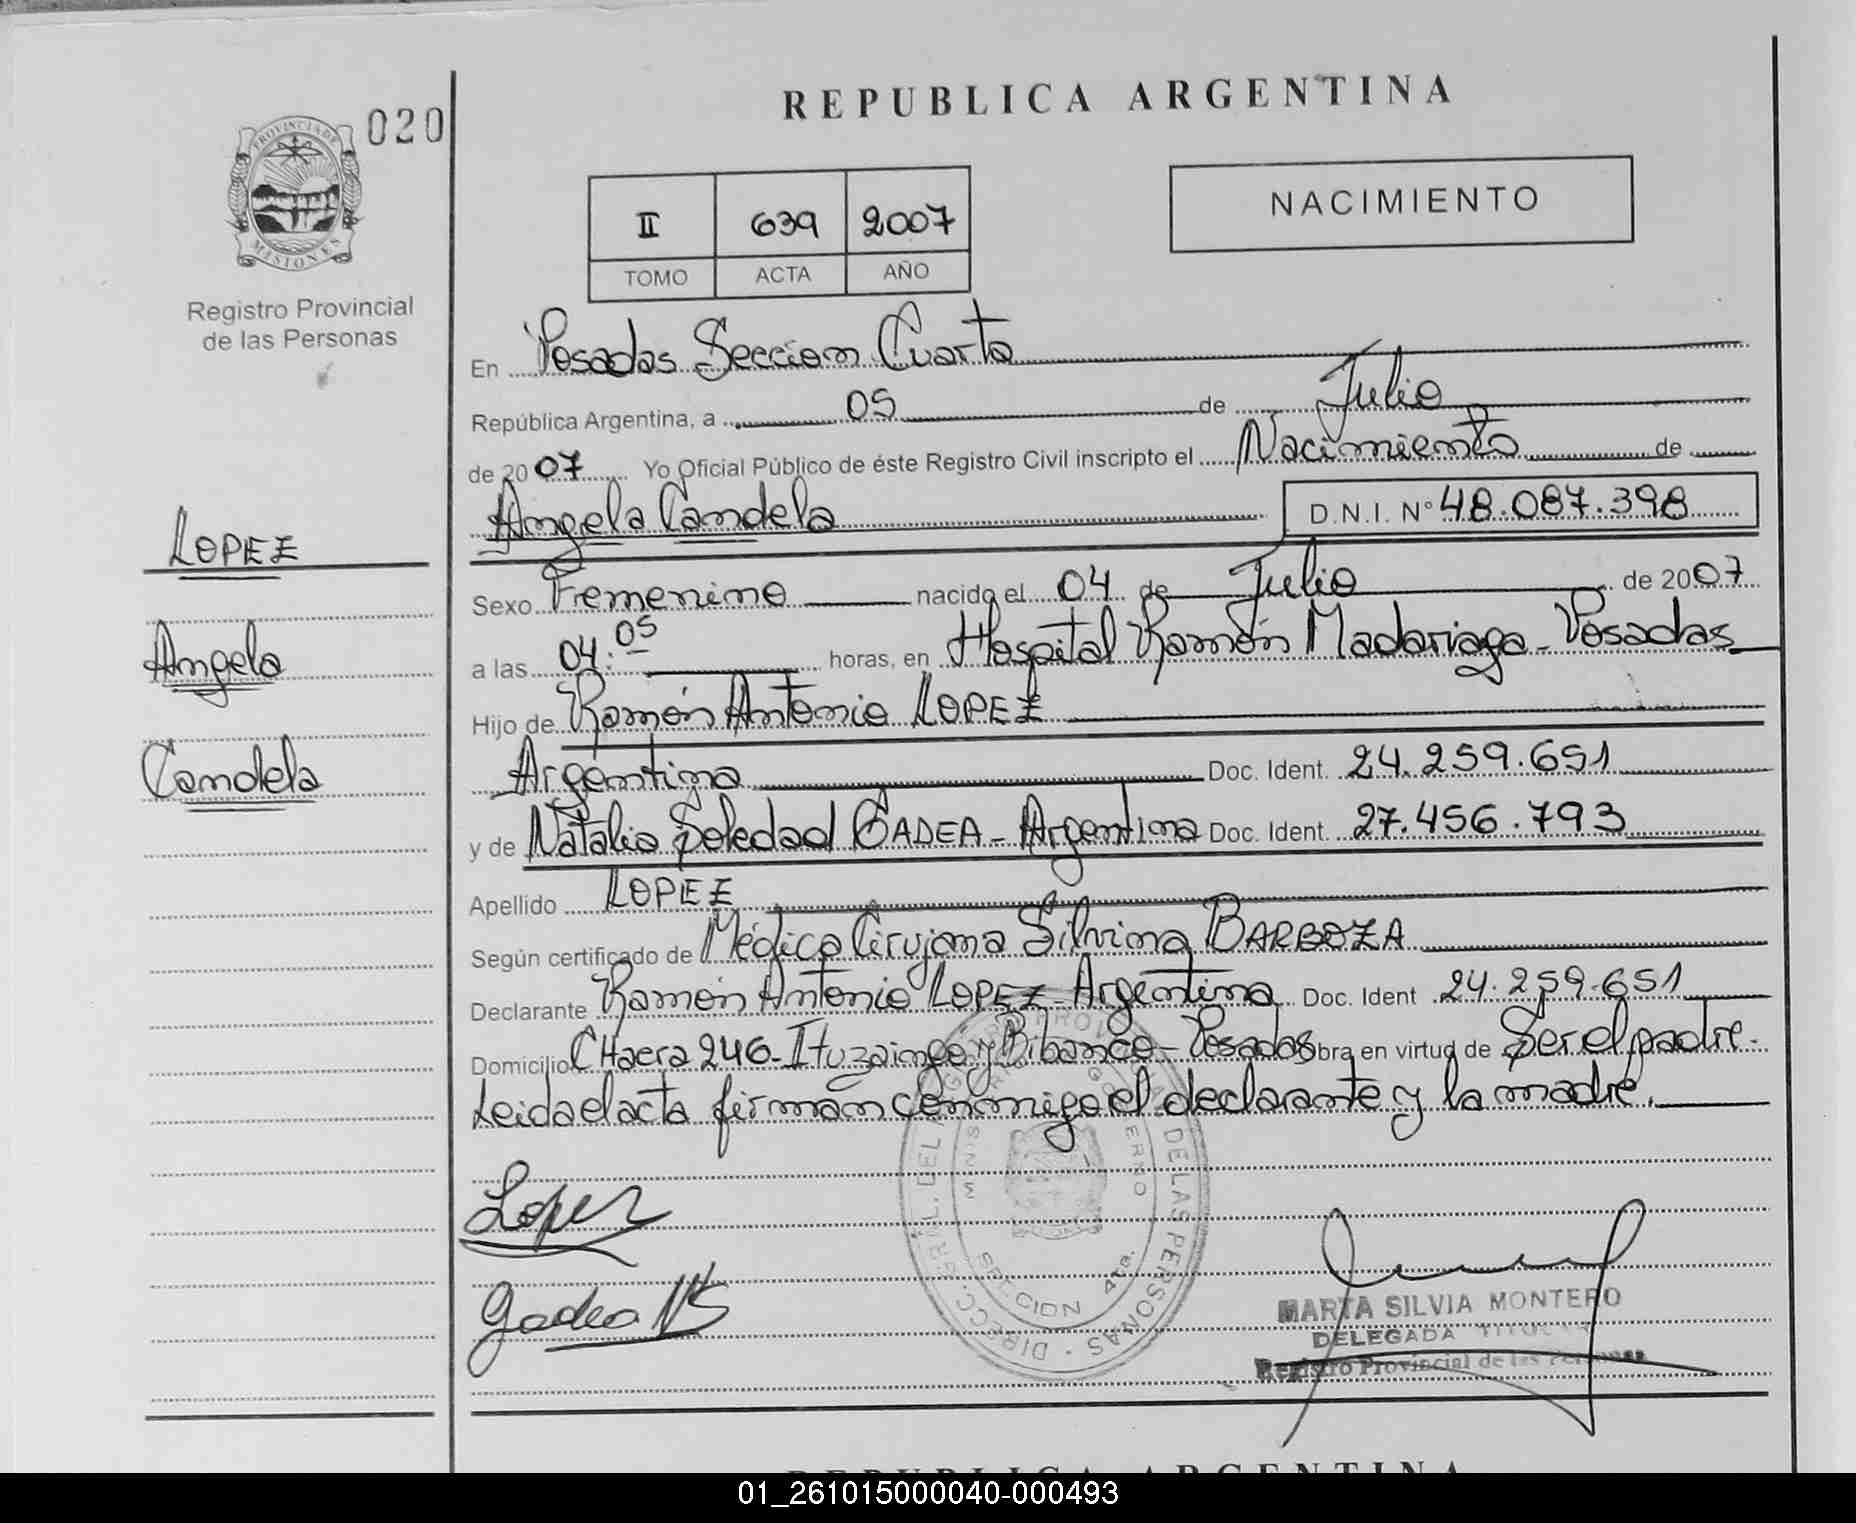 REPUBLICA ARGENTINA
020
PROVINCIA DE
MISIONES
Registro Provincial
de las Personas
NACIMIENTO
II 639 2007
TOMO ACTA AÑO
En Posadas Sección Cuarta
República Argentina, a 05 de Julio
de 2007 Yo Oficial Público de éste Registro Civil inscripto el Nacimiento de
Angela Candela D.N.I. N° 48.087.398
LOPEZ
Angela
Candela
Sexo Femenino nacido el 04 de Julio de 2007
a las 04:05 horas, en Hospital Ramón Madariaga - Posadas
Hijo de Ramón Antonio LOPEZ
Argentina Doc. Ident. 24.259.651
y de Natalia Soledad GADEA - Argentina Doc. Ident. 27.456.793
Apellido LOPEZ
Según certificado de Médica Cirujana Silvina BARBOZA
Declarante Ramón Antonio LOPEZ - Argentina Doc. Ident 24.259.651
Domicilio CHacra 246 - Ituzaingo y - Posadas obra en virtud de Ser el padre.
Leida el acta firman conmigo el declarante y la madre.
Lopez
Gadea NS
DIRECC. GRAL. DEL DE LAS PERSONAS
SECCION 4ta.
MARTA SILVIA MONTERO
DELEGADA TITULAR
Registro Provincial de las Personas
REPUBLICA ARGENTINA
01_261015000040-000493